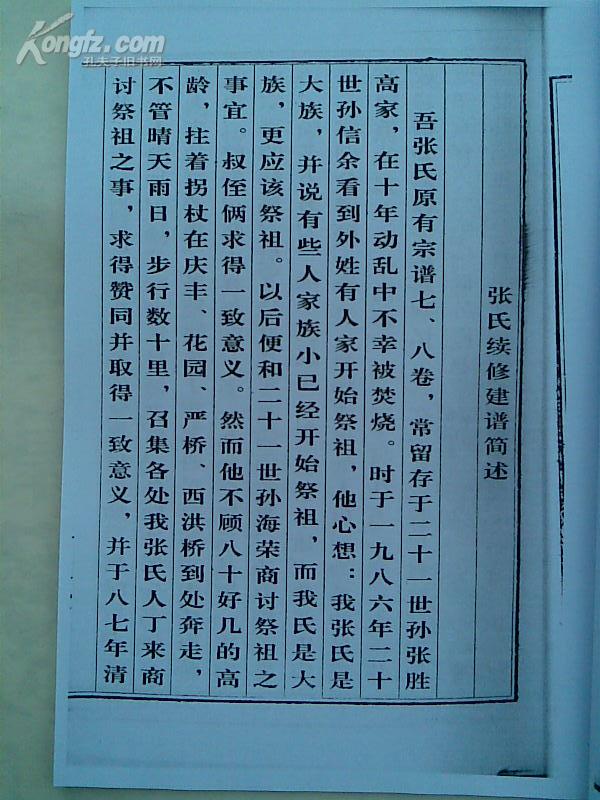 Kongfz.com
孔夫子旧书网
张氏续修建谱简述
吾张氏原有宗谱七、八卷，常留存于二十一世孙张胜
高家，在十年动乱中不幸被焚烧。时于一九八六年二十
世孙信余看到外姓有人家开始祭祖，他心想：我张氏是
大族，并说有些人家族小已经开始祭祖，而我氏是大
族，更应该祭祖。以后便和二十一世孙海荣商讨祭祖之
事宜。叔侄俩求得一致意义。然而他不顾八十好几的高
龄，拄着拐杖在庆丰、花园、严桥、西洪桥到处奔走，
不管晴天雨日，步行数十里，召集各处我张氏人丁来商
讨祭祖之事，求得赞同并取得一致意义，并于八七年清